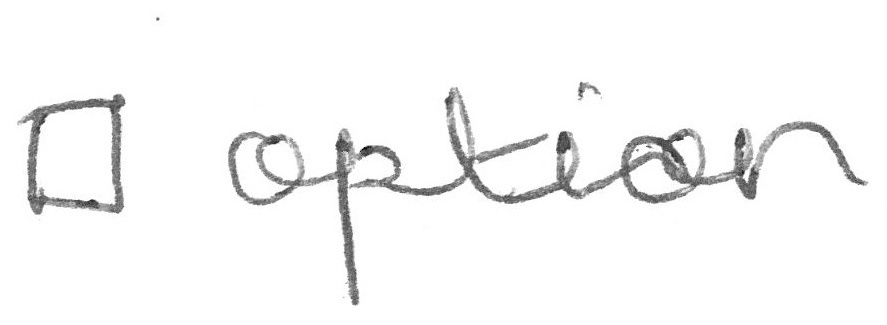 ☐ option